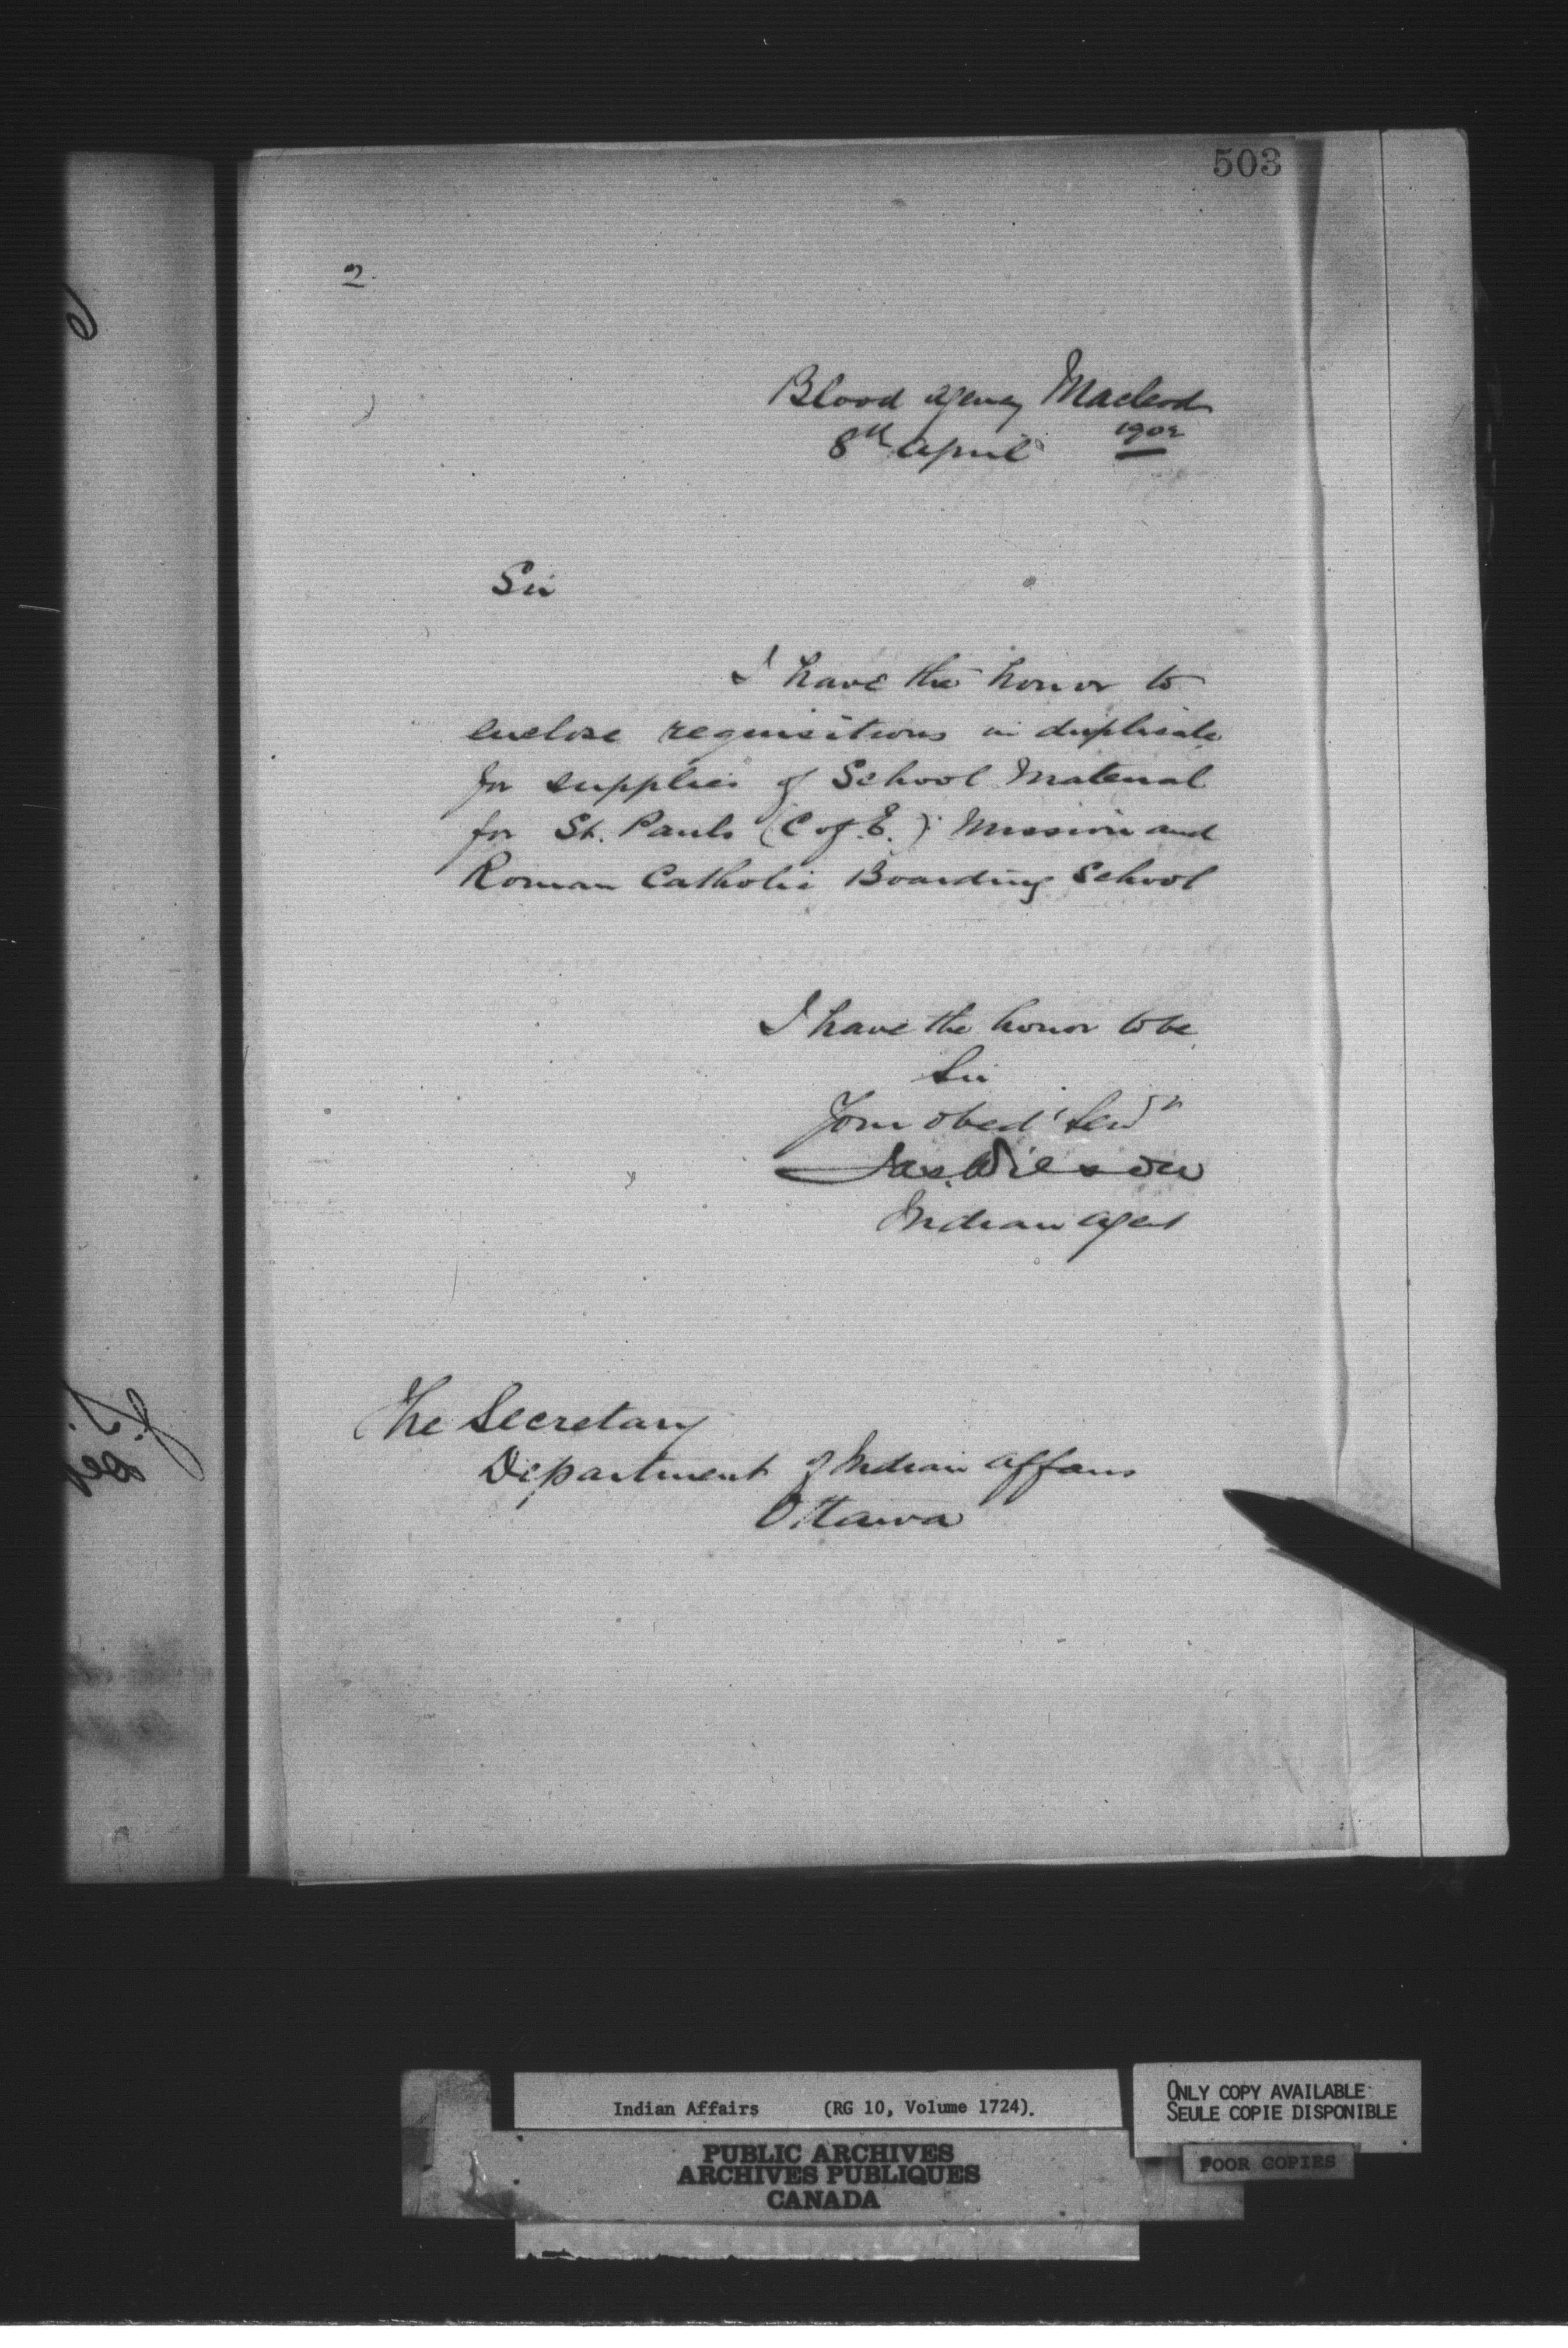 503
2
Blood Agency Macleod
8th April 1902
Sir
I have the honor to
enclose requisitions in duplicate
for supplies of School Material
for St. Pauls (C of E.) Mission and
Roman Catholic Boarding School
I have the honor to be
Sir
Your obed' Servt
Jas. Wilson
Indian Agent
The Secretary
Department of Indian Affairs
Ottawa
Indian Affairs (RG 10, Volume 1724).
PUBLIC ARCHIVES
ARCHIVES PUBLIQUES
CANADA
ONLY COPY AVAILABLE
SEULE COPIE DISPONIBLE
POOR COPIES